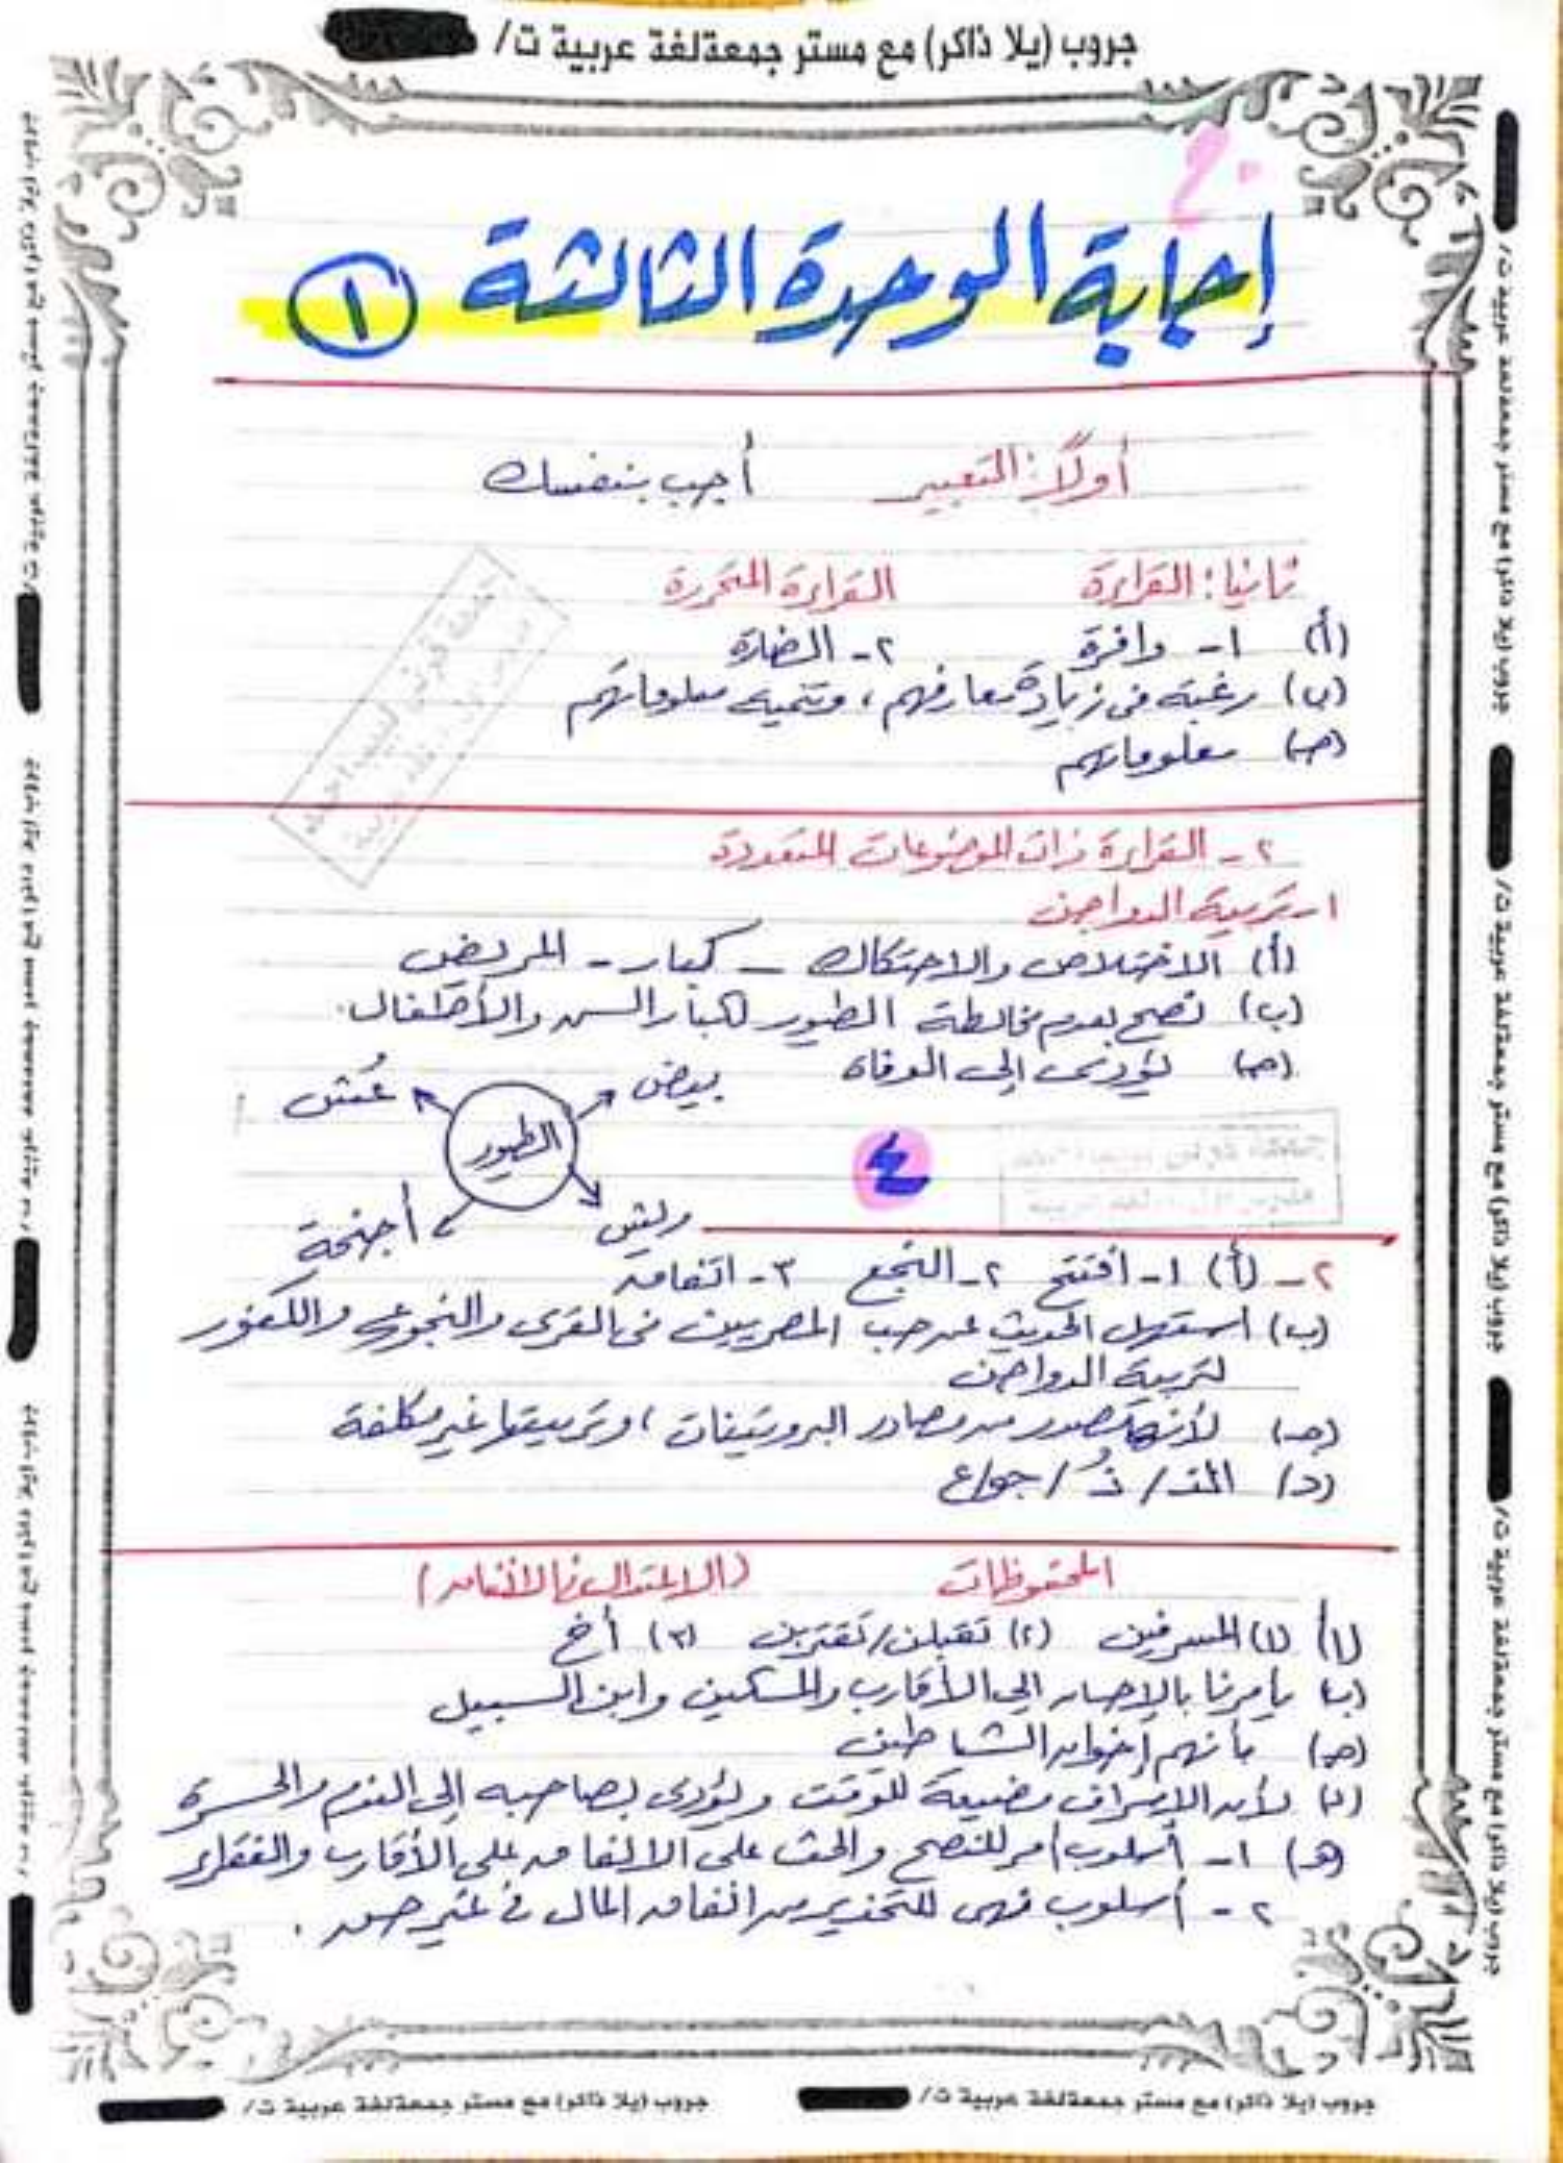 جروب (يلا ذاكر) مع مستر جمعةلغة عربية ت/
إجابة الوحدة الثالثة ١
أولاً: التعبير أجب بنفسك
ثانيا: القراءة القراءة المتحررة
(أ) ١- وافرة ٢- الضارة
(ب) رغبته فى زيادة معارفهم ، وتنمية معلوماتهم
(جـ) معلوماتهم
٢- القراءة ذات الموضوعات المتعددة
١- تربية الدواجن
(أ) الاختلاص والاحتكاك - كبار - المريض
(ب) نصح بعدم مخالطة الطيور لكبار السن والأطفال.
(جـ) يؤدى إلى الوفاة
بيض
عُش
الطيور
ريش
أجنحة
٤
٢- (أ) ١- افتتح ٢- النجع ٣- اتفاق
(ب) استهل الحديث عن حب المصريين فى القرى والنجوع والكفور
لتربية الدواجن
(جـ) لأنها مصدر من مصادر البروتينات ، وتربيتها غير مكلفة
(د) المذ / ذُ / جواع
المحفوظات (الاعتدال فى الانفاق)
(أ) (١) المسرفين (٢) تقبلن/تقتربن (٣) أخ
(ب) يأمرنا بالإحسان إلى الأقارب والمسكين وابن السبيل
(جـ) بأنهم إخوان الشياطين
(د) لأن الإسراف مضيعة للوقت ويؤدى بصاحبه إلى الندم والحسرة
(هـ) ١- أسلوب أمر للنصح والحث على الانفاق على الأقارب والفقراء
٢- أسلوب نهى للتحذير من انفاق المال فى غير حق .
جروب (يلا ذاكر) مع مستر جمعةلغة عربية ت/
جروب (يلا ذاكر) مع مستر جمعةلغة عربية ت/
جروب (يلا ذاكر) مع مستر جمعةلغة عربية ت/
جروب (يلا ذاكر) مع مستر جمعةلغة عربية ت/
جروب (يلا ذاكر) مع مستر جمعةلغة عربية ت/